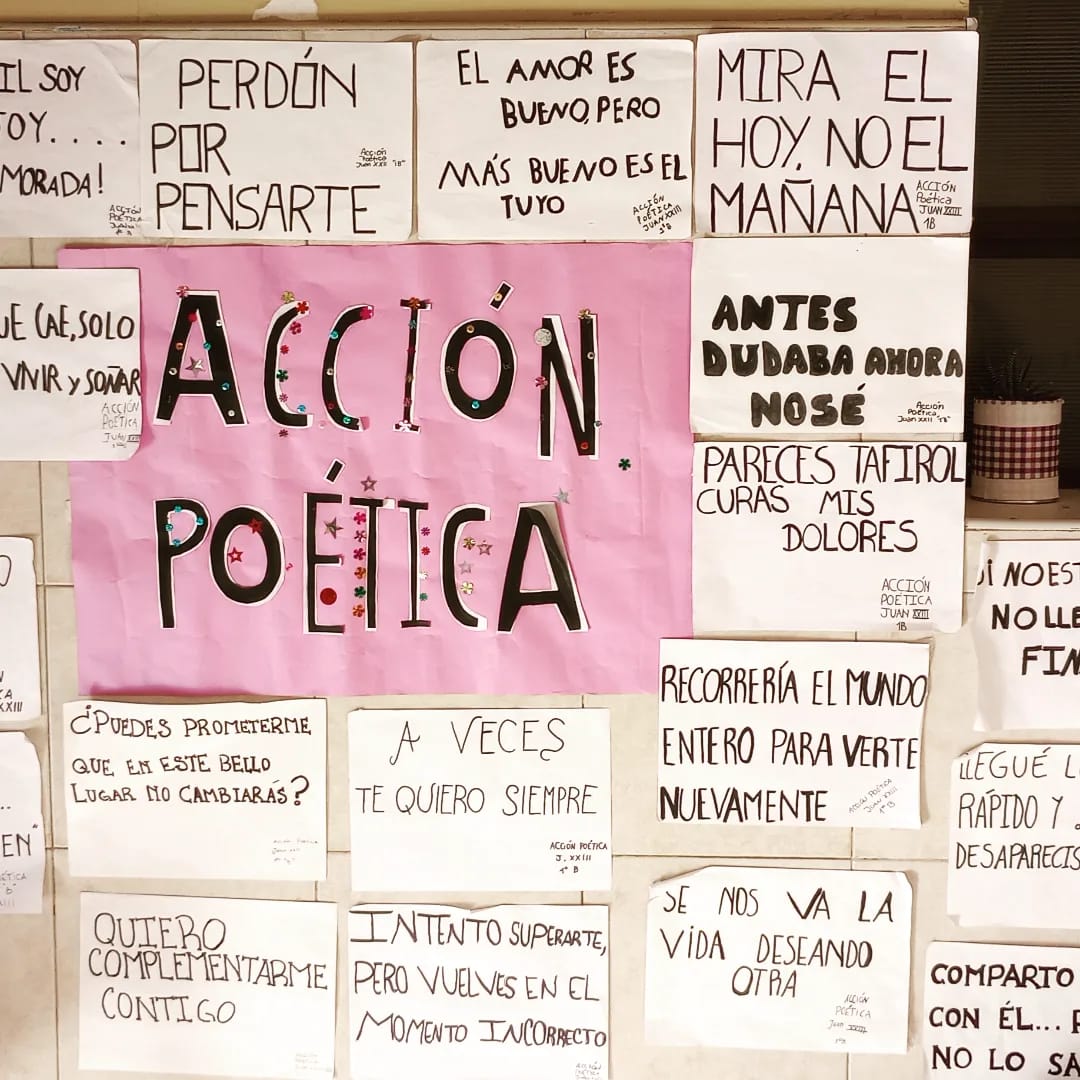 IL SOY
OY....
MORADA!
ACCIÓN
POÉTICA
PERDÓN
POR
PENSARTE
Acción
Poética
Juan XXII "1B"
EL AMOR ES
BUENO, PERO
MÁS BUENO ES EL
TUYO
ACCIÓN
POÉTICA
JUAN XXIII
1º B
MIRA EL
HOY, NO EL
MAÑANA
ACCIÓN
Poética
JUAN XXIII
1B
UE CAE, SOLO
VIVIR y SOÑAR
ACCIÓN
POÉTICA
JUAN XXIII
ACCIÓN
POÉTICA
ANTES
DUDABA AHORA
NOSÉ
Acción
Poética,
Juan XXII "1B"
PARECES TAFIROL
CURAS MIS
DOLORES
ACCIÓN
POÉTICA
JUAN XXIII
1B
O
N
CA
XXIII
¡I NO EST
NO LLE
FIN
RECORRERÍA EL MUNDO
ENTERO PARA VERTE
NUEVAMENTE
ACCIÓN POÉTICA
JUAN XXIII
1º B
¿PUEDES PROMETERME
QUE EN ESTE BELLO
LUGAR NO CAMBIARÁS?
Acción Poética
A VECES
TE QUIERO SIEMPRE
ACCIÓN POÉTICA
J. XXIII
1º B
...
EN"
ÉTICA
"B"
XIII
LLEGUÉ L
RÁPIDO Y
DESAPARECIS
QUIERO
COMPLEMENTARME
CONTIGO
INTENTO SUPERARTE,
PERO VUELVES EN EL
MOMENTO INCORRECTO
ACCIÓN
POÉTICA
SE NOS VA LA
VIDA DESEANDO
OTRA
ACCIÓN
POÉTICA
Juan XXIII
1ºB
COMPARTO
CON ÉL...
NO LO SA